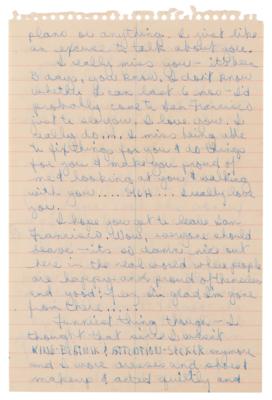 plans or anything. I just like
an excuse to talk about you.
I really miss you - it's been
3 days, you know, I don't know
whether I can last 6 mos - I'd
probably come to San Francisco
just to see you. I love you. I
really do. I miss being able
to fix things for you & do things
for you & make you proud of
me & looking at you & walking
with you..... I really love
you.
I hope you get to leave San
Francisco. Wow, everyone should
leave - it's so damn nice out
here in the real world where people
are happy and proud of themselves
and good. I'm glad I'm gone
from there.....
Funniest thing though - I
thought that since I wasn't
ATTENTION-SEEKER anymore
and I wore dresses and
makeup & acted quietly and